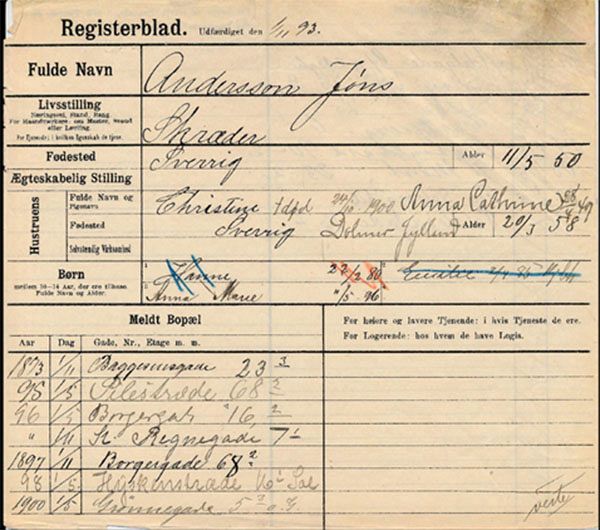 Registerblad. Udfærdiget den 1/11 93.
Fulde Navn Andersson Jöns
Livsstilling
Næringsvej, Stand, Rang.
For Haandværkere: om Mester, Svend
eller Lærling.
For Tjenende: i hvilken Egenskab de tjene.
Skræder
Fødested Sverrig Alder 11/5 50
Ægteskabelig Stilling
Hustruens
Fulde Navn og
Pigenavn
Christine død 1900 Anna Cathrine
Fødested Sverrig Dolmer Jylland Alder 29/3 58
Selvstændig Virksomhed
Børn
mellem 10-14 Aar, der ere tilhuse
Fulde Navn og Alder.
1. Hanne 22/2 80
2. Anna Marie 11/5 96
Meldt Bopæl
For højere og lavere Tjenende: i hvis Tjeneste de ere.
For Logerende: hos hvem de have Logis.
Aar Dag Gade, Nr., Etage m. m.
1893 1/11 Baggesensgade 23 3
95 1/5 Pilestræde 68 2
96 1/5 Borgergat 16, 2
" 1/11 St. Regnegade 7 1
1897 1/11 Borgergade 68 2
98 1/5 Hyskenstræde 16 1 Sal
1900 1/5 Grønnegade 5 3 o. G.
vente